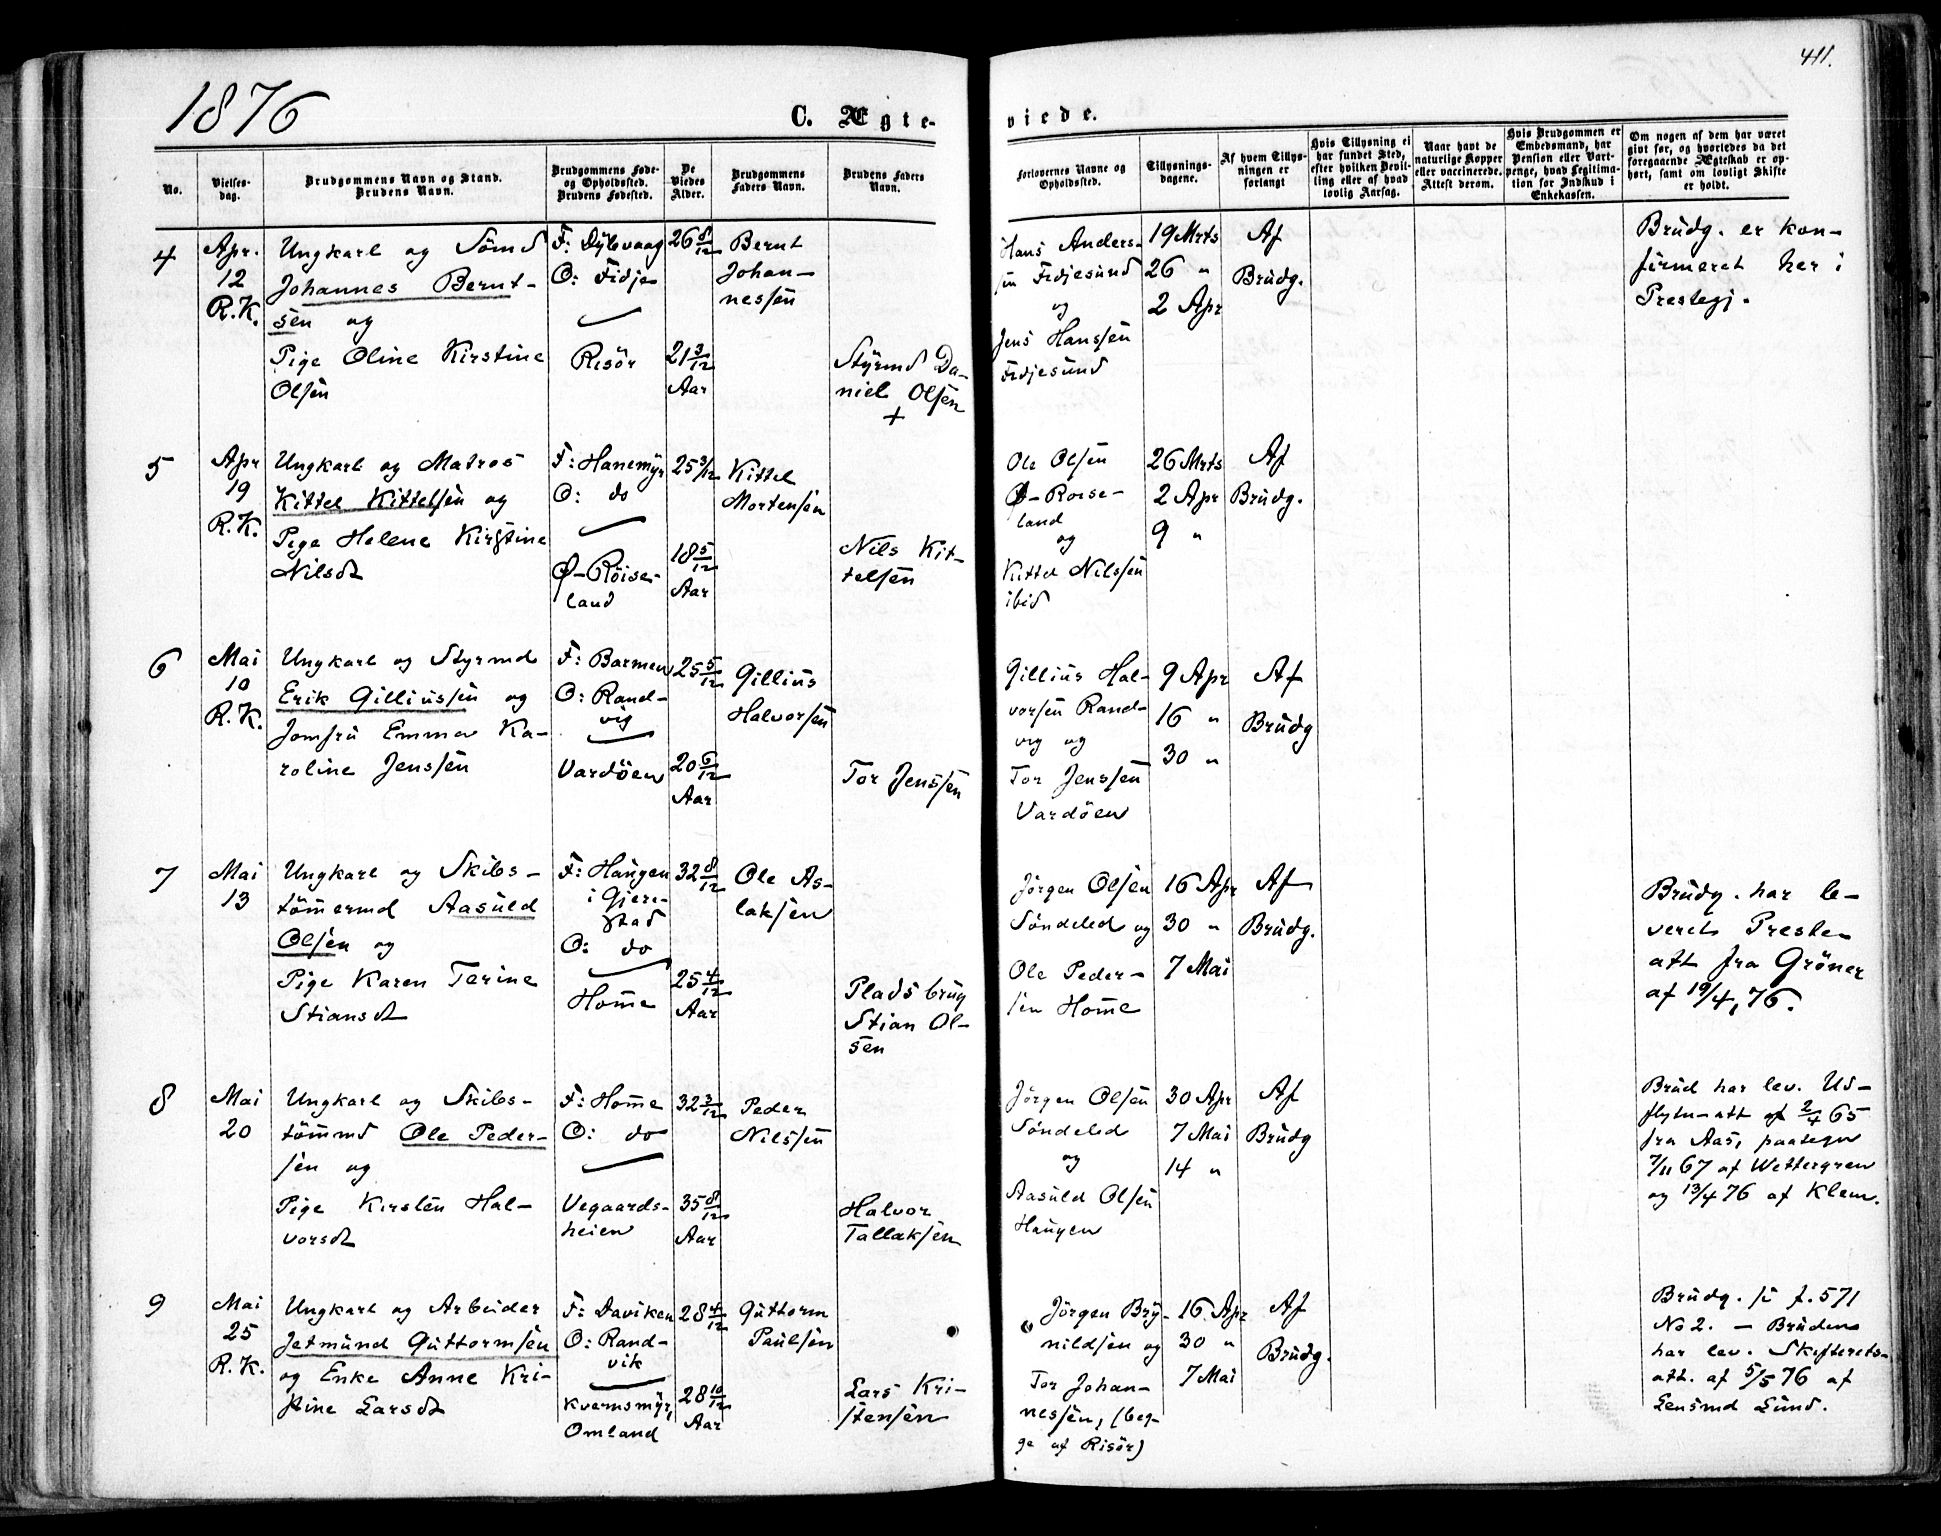 1876
C. Ægte-
viede.
411.
No.
Vielses-
dag.
Brudgommens Navn og Stand.
Brudens Navn.
Brudgommens Føde-
og Opholdssted.
Brudens Fødested.
De
Viedes
Alder.
Brudgommens
Faders Navn.
Brudens Faders
Navn.
Forlovernes Navne og
Opholdssted.
Tillysnings-
dagene.
Af hvem Tillys-
ningen er
forlangt
Hvis Tillysning ei
har fundet Sted,
efter hvilken Bevil-
ling eller af hvad
lovlig Aarsag.
Naar havt de
naturlige Kopper
eller vaccinerede.
Attest derom.
Hvis Brudgommen er
Embedsmand, har
Pension eller Vart-
penge, hvad Legitima-
tion for Indskud i
Enkekassen.
Om nogen af dem har været
givt før, og hvorledes da det
foregaaende Ægteskab er op-
hørt, samt om lovligt Skifte
er holdt.
4
Apr.
12
R.K.
Ungkarl og Sömd
Johannes Bernt-
sen og
Pige Oline Kirstine
Olsen
F: Dybvaag
O: Fidje
Risör
26 8/12
21 3/12
Aar
Bernt
Johan-
nessen
Styrmd Da-
niel Olsen
+
Hans Anders-
sen Fidjesund
og
Jens Hanssen
Fidjesund
19 Mrts
26 "
2 Apr
Af
Brudg.
Brudg. er kon-
firmeret her i
Prestegj.
5
Apr
19
R.K.
Ungkarl og Matros
Kittel Kittelsen og
Pige Helene Kirstine
Nilsdt
F: Hanemyr
O: do
Ø-Röise-
land
25 3/12
18 5/12
Aar
Kittel
Mortensen
Nils Kit-
telsen
Ole Olsen
Ø-Roise-
land
og
Kittel Nilssen
ibid
26 Mrts
2 Apr
9 "
Af
Brudg.
6
Mai
10
R.K.
Ungkarl og Styrmd
Erik Gilliussen og
Jomfru Emma Ka-
roline Jenssen
F: Barmen
O: Rand-
vig
Vardöen
25 5/12
20 6/12
Aar
Gillius
Halvorsen
Tor Jenssen
Gillius Hal-
vorsen Rand-
vig og
Tor Jenssen
Vardöen
9 Apr
16 "
30 "
Af
Brudg
7
Mai
13
Ungkarl og Skibs-
tömermd Aasuld
Olsen og
Pige Karen Terine
Stiansdt
F: Haugen
i Gjere-
stad
O: do
Home
32 8/12
25 4/12
Aar
Ole As-
laksen
Pladsbrug
Stian Ol-
sen
Jörgen Olsen
Söndeled og
Ole Peder-
sen Home
16 Apr
30 "
7 Mai
Af
Brudg.
Brudg. har le-
veret Preste-
att fra Gröner
af 19/4, 76.
8
Mai
20
Ungkarl og Skibs-
tömmd Ole Peder-
sen og
Pige Kirsten Hal-
vorsdt
F: Home
O: do
Vegaards-
heien
32 3/12
35 8/12
Aar
Peder
Nilssen
Halvor
Tallaksen
Jörgen Olsen
Söndeled
og
Aasuld Olsen
Haugen
30 Apr
7 Mai
14 "
Af
Brudg
Brud har lev. Ud-
flytn-att af 2/4 65
fra Aas, paategn
7/11 67 af Wettergren
og 13/4 76 af Klem.
9
Mai
25
R.K.
Ungkarl og Arbeider
Jetmund Guttormsen
og Enke Anne Kri-
stine Larsdt
F: Daviken
O: Rand-
vik
Kvernsmyr,
Omland
28 4/12
28 10/12
Aar
Guttorm
Paulsen
Lars Kri-
stensen
Jörgen Bry-
nildsen og
Tor Johan-
nessen, (beg-
ge af Risör)
16 Apr
30 "
7 Mai
Af
Brudg.
Brudg. se f. 571
No 2. - Bruden
har lev. Skifterets-
att. af 5/5 76 af
Lensmd Lund.